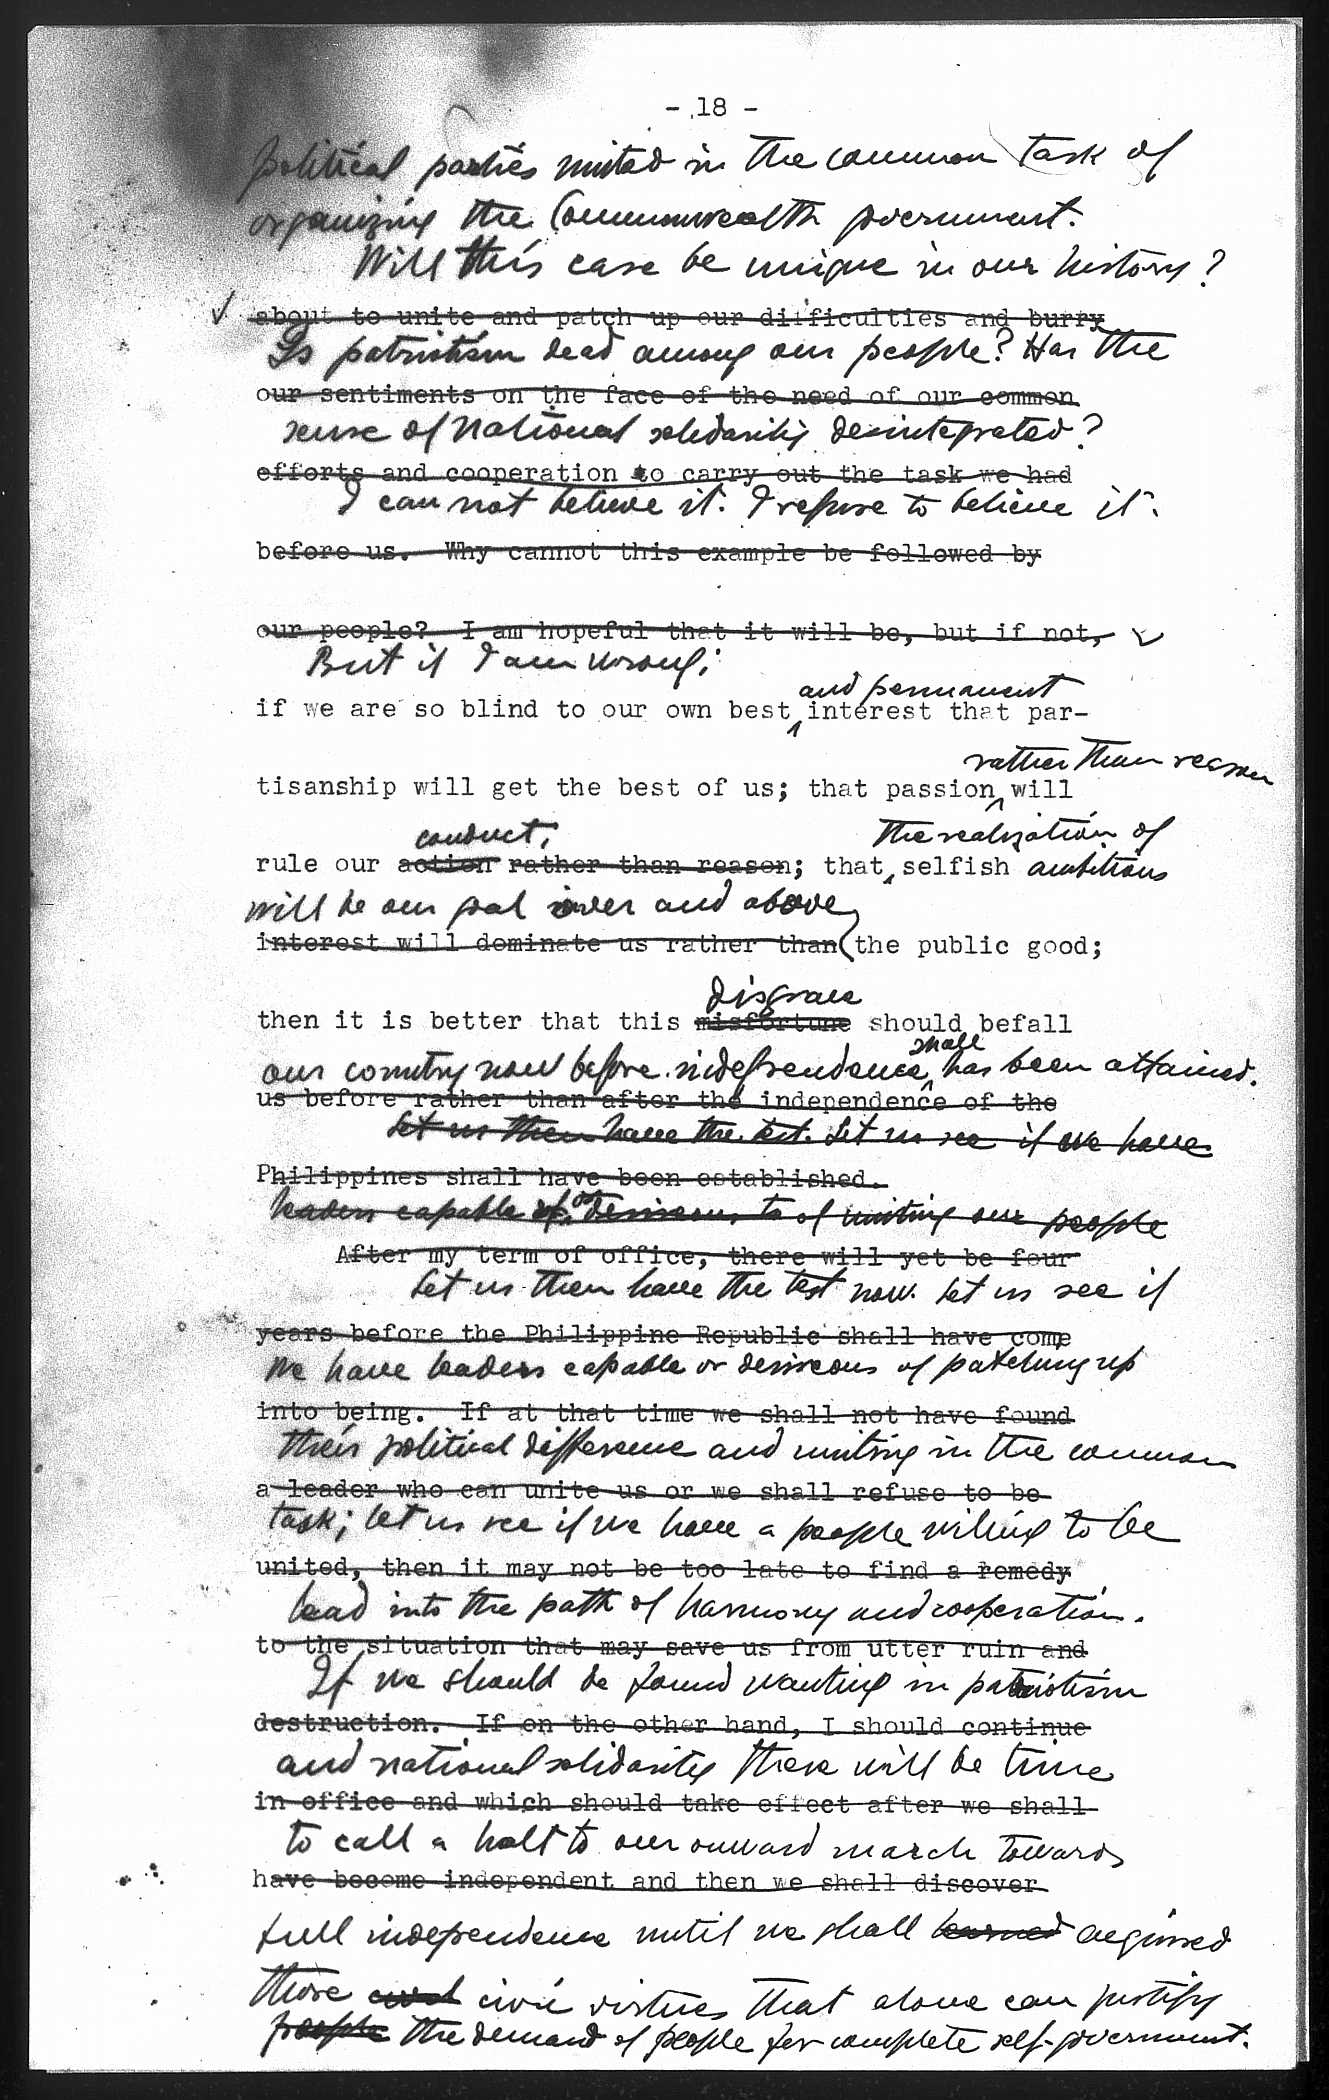 - 18 -
political parties united in the common task of
organizing the Commonwealth government.
Will this case be unique in our history?
about to unite and patch up our difficulties and burry
Is patriotism dead among our people? Has the
our sentiments on the face of the need of our common
sense of national solidarity desintegrated?
efforts and cooperation to carry out the task we had
I can not believe it. I refuse to believe it.
before us. Why cannot this example be followed by
our people? I am hopeful that it will be, but if not,
But if I am wrong;
and permanent
if we are so blind to our own best interest that par-
rather than reason
tisanship will get the best of us; that passion will
conduct; the realization of
rule our action rather than reason; that selfish ambitions
will be our goal over and above
interest will dominate us rather than the public good;
disgrace
then it is better that this misfortune should befall
shall
our country now before independence has been attained.
us before rather than after the independence of the
Let us then have the test. Let us see if we have
Philippines shall have been established.
leaders capable of or desireous to of uniting our people
After my term of office, there will yet be four
Let us then have the test now. Let us see if
years before the Philippine Republic shall have come
we have leaders capable or desireous of patching up
into being. If at that time we shall not have found
their political difference and uniting in the common
a leader who can unite us or we shall refuse to be
task; let us see if we have a people willing to be
united, then it may not be too late to find a remedy
lead into the path of harmony and cooperation.
to the situation that may save us from utter ruin and
If we should be found wanting in patriotism
destruction. If on the other hand, I should continue
and national solidarity there will be time
in office and which should take effect after we shall
to call a halt to our onward march towards
have become independent and then we shall discover
full independence until we shall learned acquired
those civil civic virtues that alone can justify
people the demand of people for complete self-government.